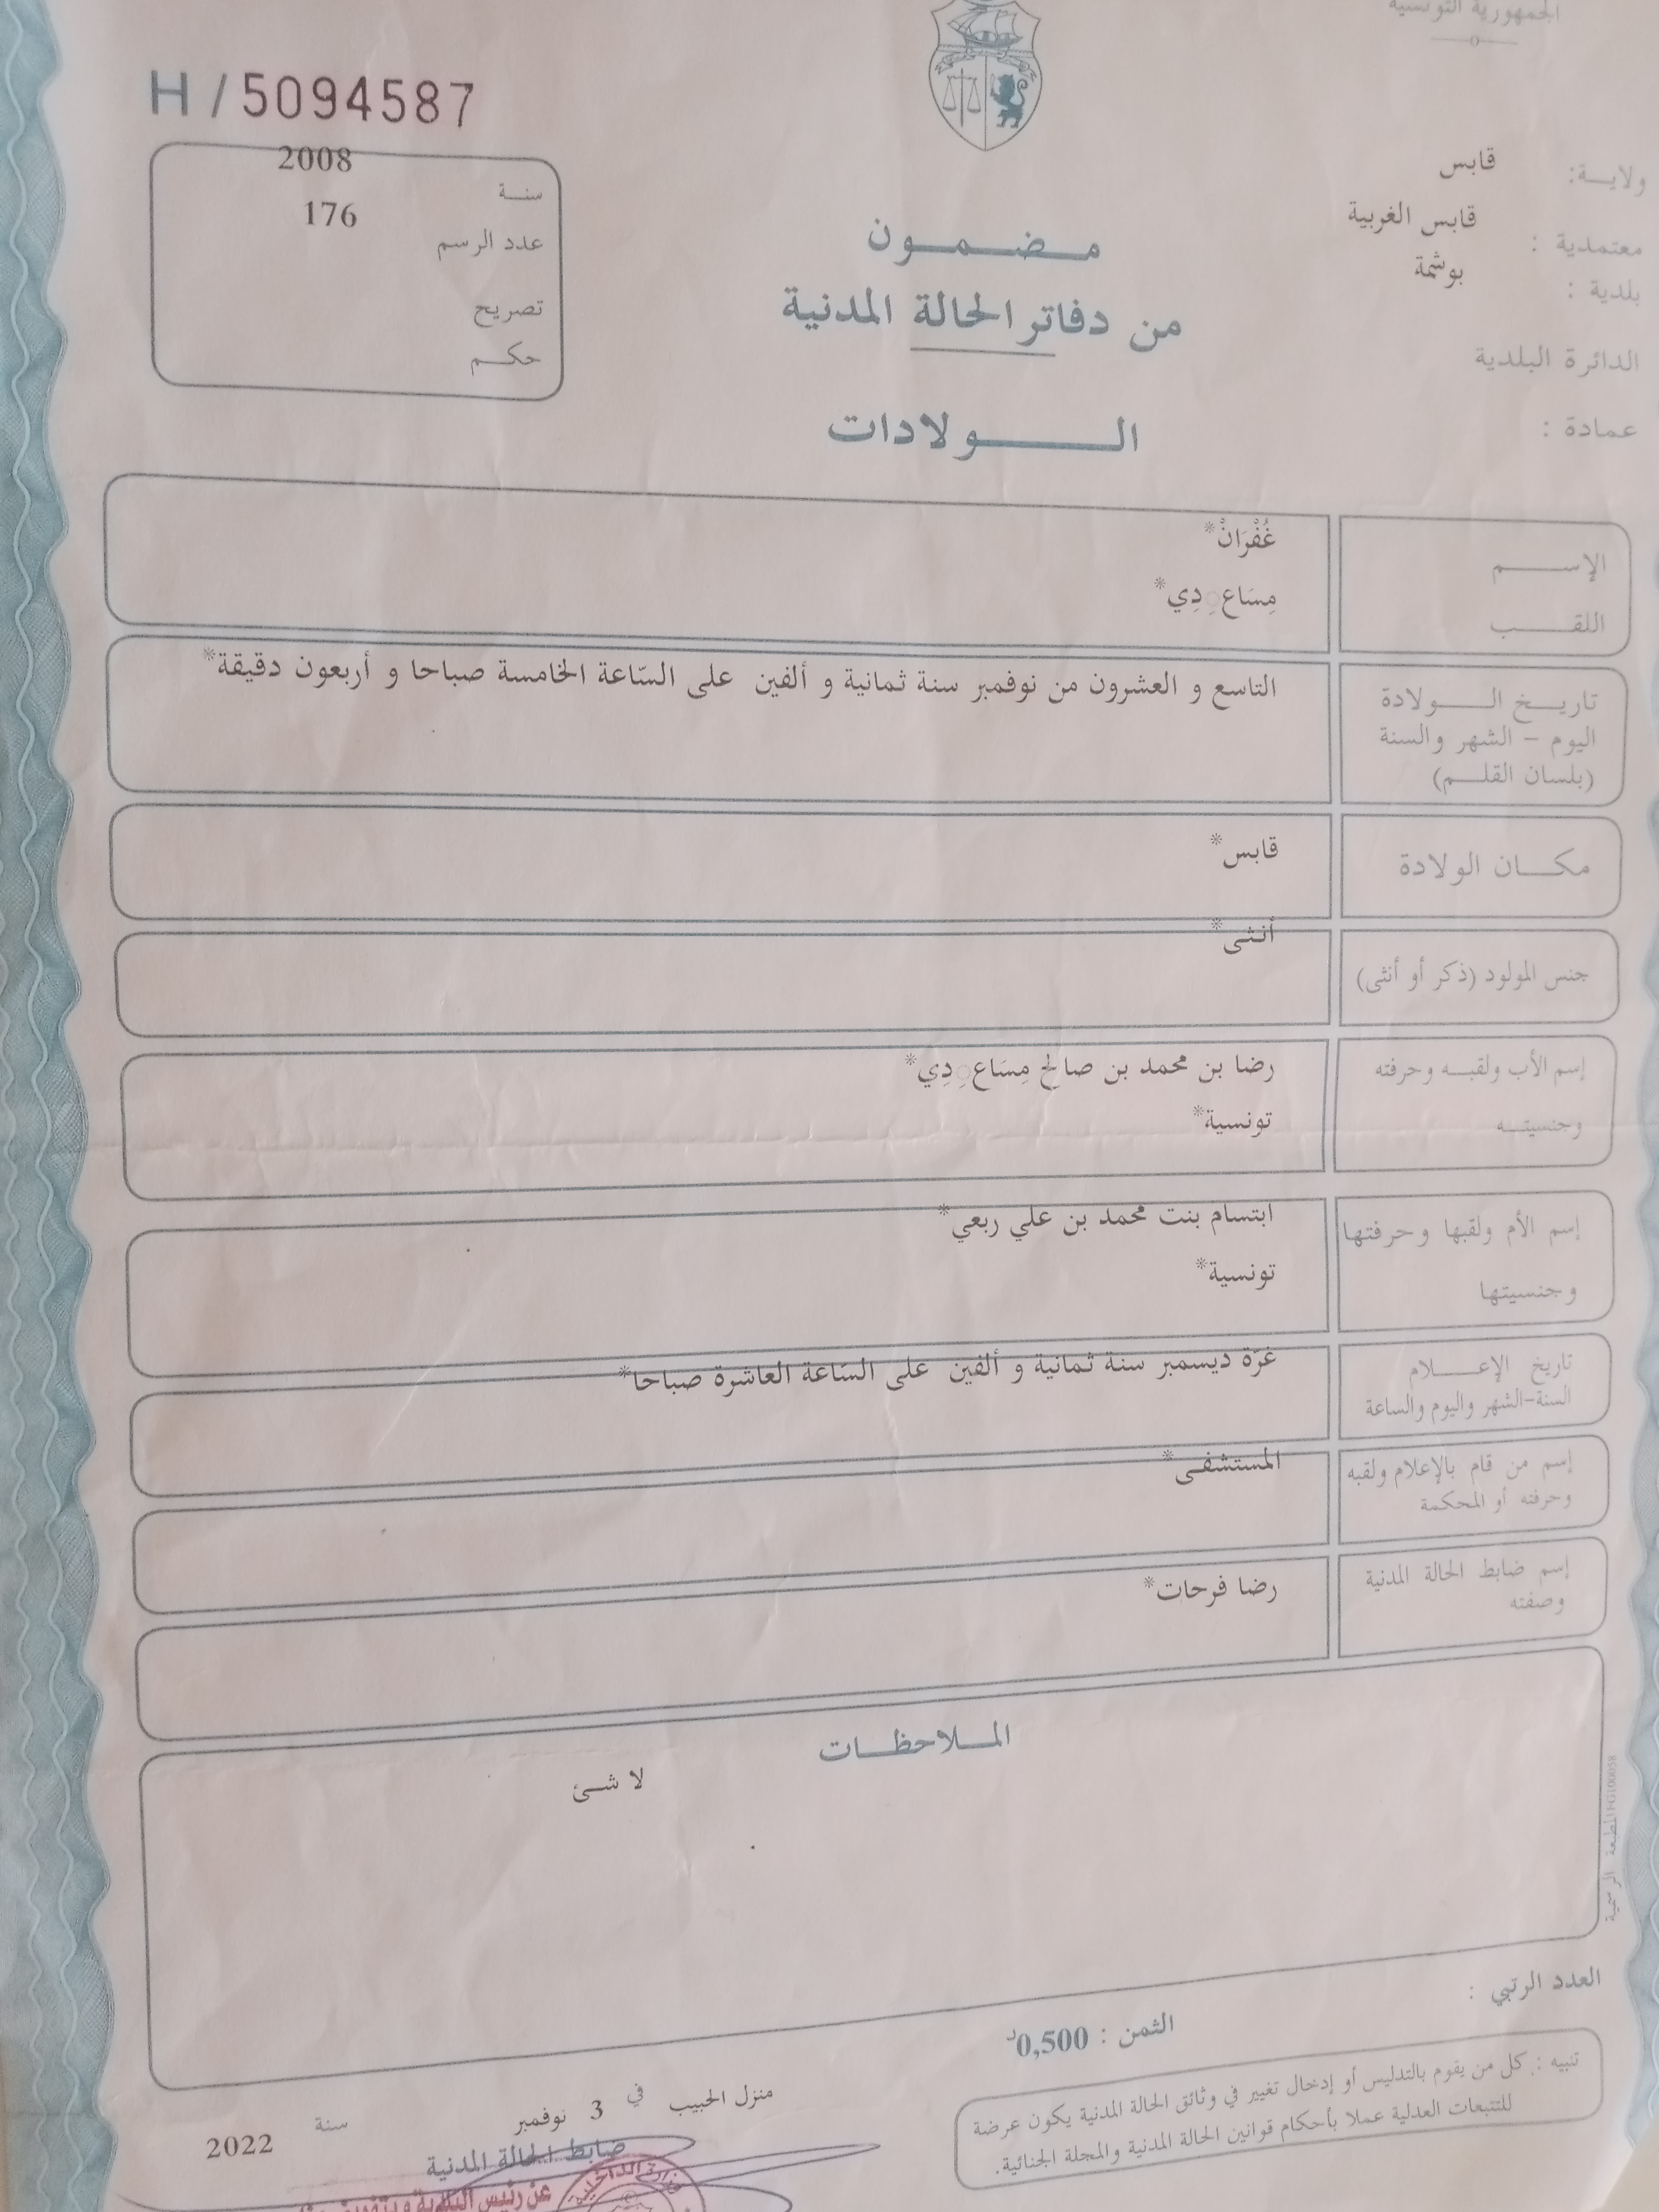 الجمهورية التونسية
H / 5094587
ولايــة: قابس
معتمدية : قابس الغربية
بلدية : بوشمة
الدائرة البلدية
عمادة :
سنــة 2008
عدد الرسم 176
تصريح
حكــم
مـضـمـون
من دفاتر الحالة المدنية
الـولادات
الإســم غُفْرَانْ*
اللقــب مِسَاعِدِي*
تاريـخ الـولادة
اليوم – الشهر والسنة
(بلسان القلـم)
التاسع و العشرون من نوفمبر سنة ثمانية و ألفين على السّاعة الخامسة صباحا و أربعون دقيقة*
مكـان الولادة قابس*
جنس المولود (ذكر أو أنثى) أنثى*
إسم الأب ولقبـه وحرفته رضا بن محمد بن صالح مِسَاعِدِي*
وجنسيتـه تونسية*
إسم الأم ولقبها وحرفتها ابتسام بنت محمد بن علي ربعي*
وجنسيتها تونسية*
تاريخ الإعـلام
السنة-الشهر واليوم والساعة
غرّة ديسمبر سنة ثمانية و ألفين على السّاعة العاشرة صباحا*
إسم من قام بالإعلام ولقبه
وحرفته أو المحكمة
المستشفى*
إسم ضابط الحالة المدنية
وصفته
رضا فرحات*
المـلاحظـات
لا شئ
المطبعة الرسمية
العدد الرتبي :
الثمن : 0,500د
تنبيه : كل من يقوم بالتدليس أو إدخال تغيير في وثائق الحالة المدنية يكون عرضة
للتتبعات العدلية عملا بأحكام قوانين الحالة المدنية والمجلة الجنائية.
منزل الحبيب في 3 نوفمبر سنة 2022
ضابط الحالة المدنية
عن رئيس البلدية وبتفويض منه
وزارة الداخلية